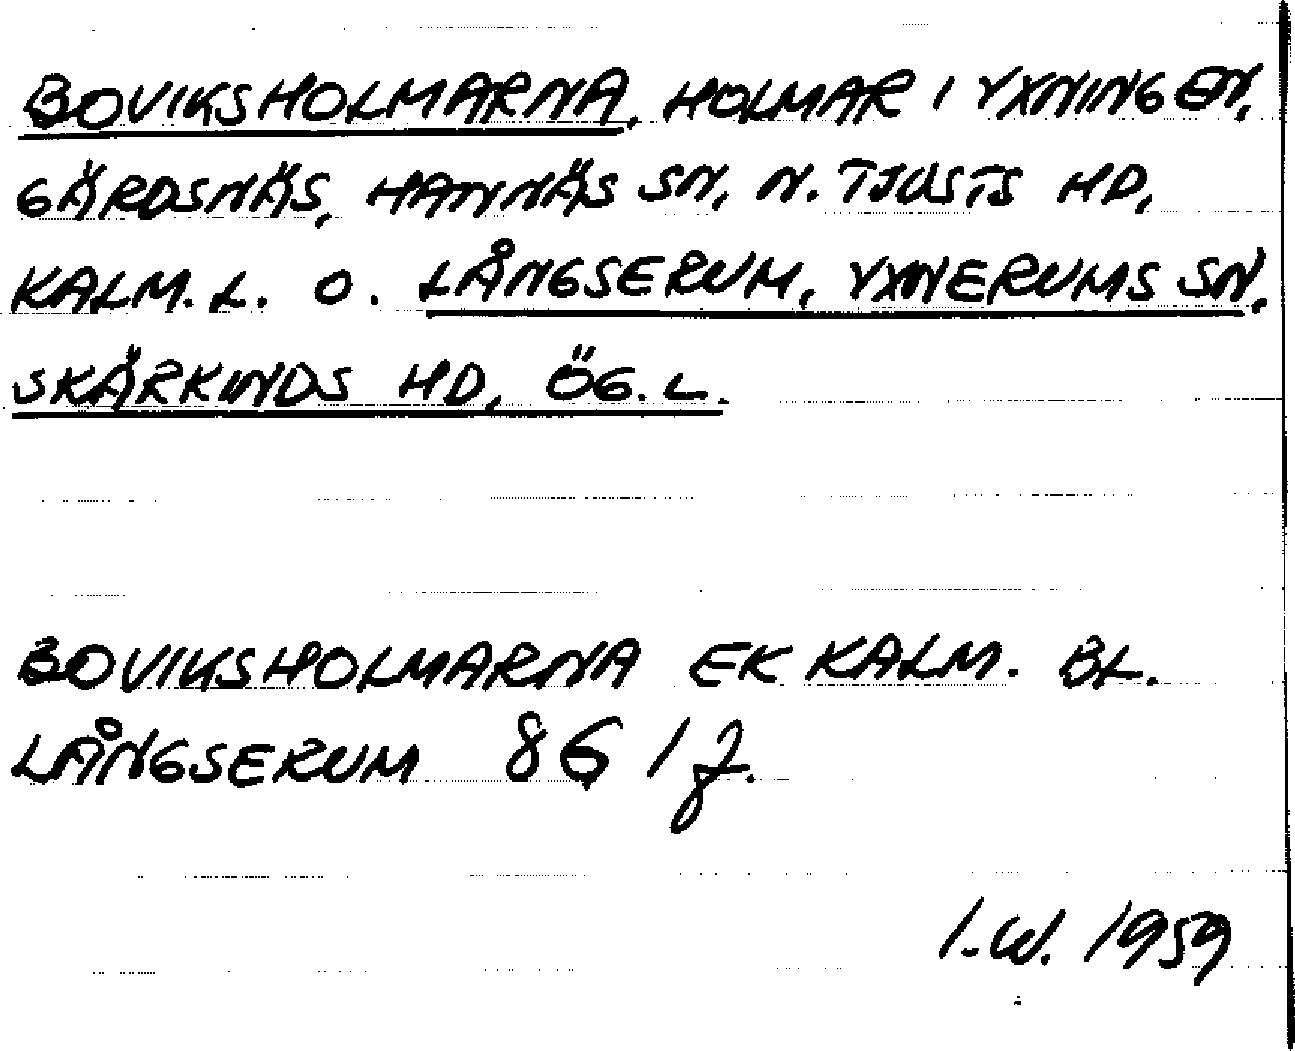 BOVIKSHOLMARNA, HOLMAR I YXNINGEN,
GÄRDSNÄS, HANNÄS SN, N. TJUSTS HD,
KALM. L. O. LÅNGSERUM, YXNERUMS SN,
SKÄRKINDS HD, ÖG. L.
BOVIKSHOLMARNA EK KALM. BL.
LÅNGSERUM 8G 1 J.
I.W. 1959